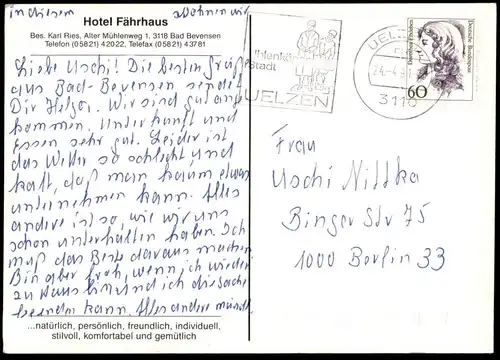 in diesem wohnen wir
Hotel Fährhaus
Bes. Karl Ries, Alter Mühlenweg 1, 3118 Bad Bevensen
Telefon (05821) 42022, Telefax (05821) 43781
Liebe Uschi! Die besten Grüße
aus Bad-Bevensen sendet
Dir Helga. Wir sind gut ange
kommen. Unterkunft und
Essen sehr gut. Leider ist
das Wetter so schlecht und
kalt, daß man kaum etwas
unternehmen kann. Alles
andere ist so, wie wir uns
schon unterhalten haben. Ich
muß das Beste daraus machen.
Bin aber froh, wenn ich wieder
zu Haus bin und ich die Sache
beenden kann. Alles andere mündl.
...natürlich, persönlich, freundlich, individuell,
stilvoll, komfortabel und gemütlich
Stadt
UELZEN
UELZEN
24-4.91
3110
Deutsche Bundespost
60
Frau
Uschi Nittka
Binger Str 75
1000 Berlin 33